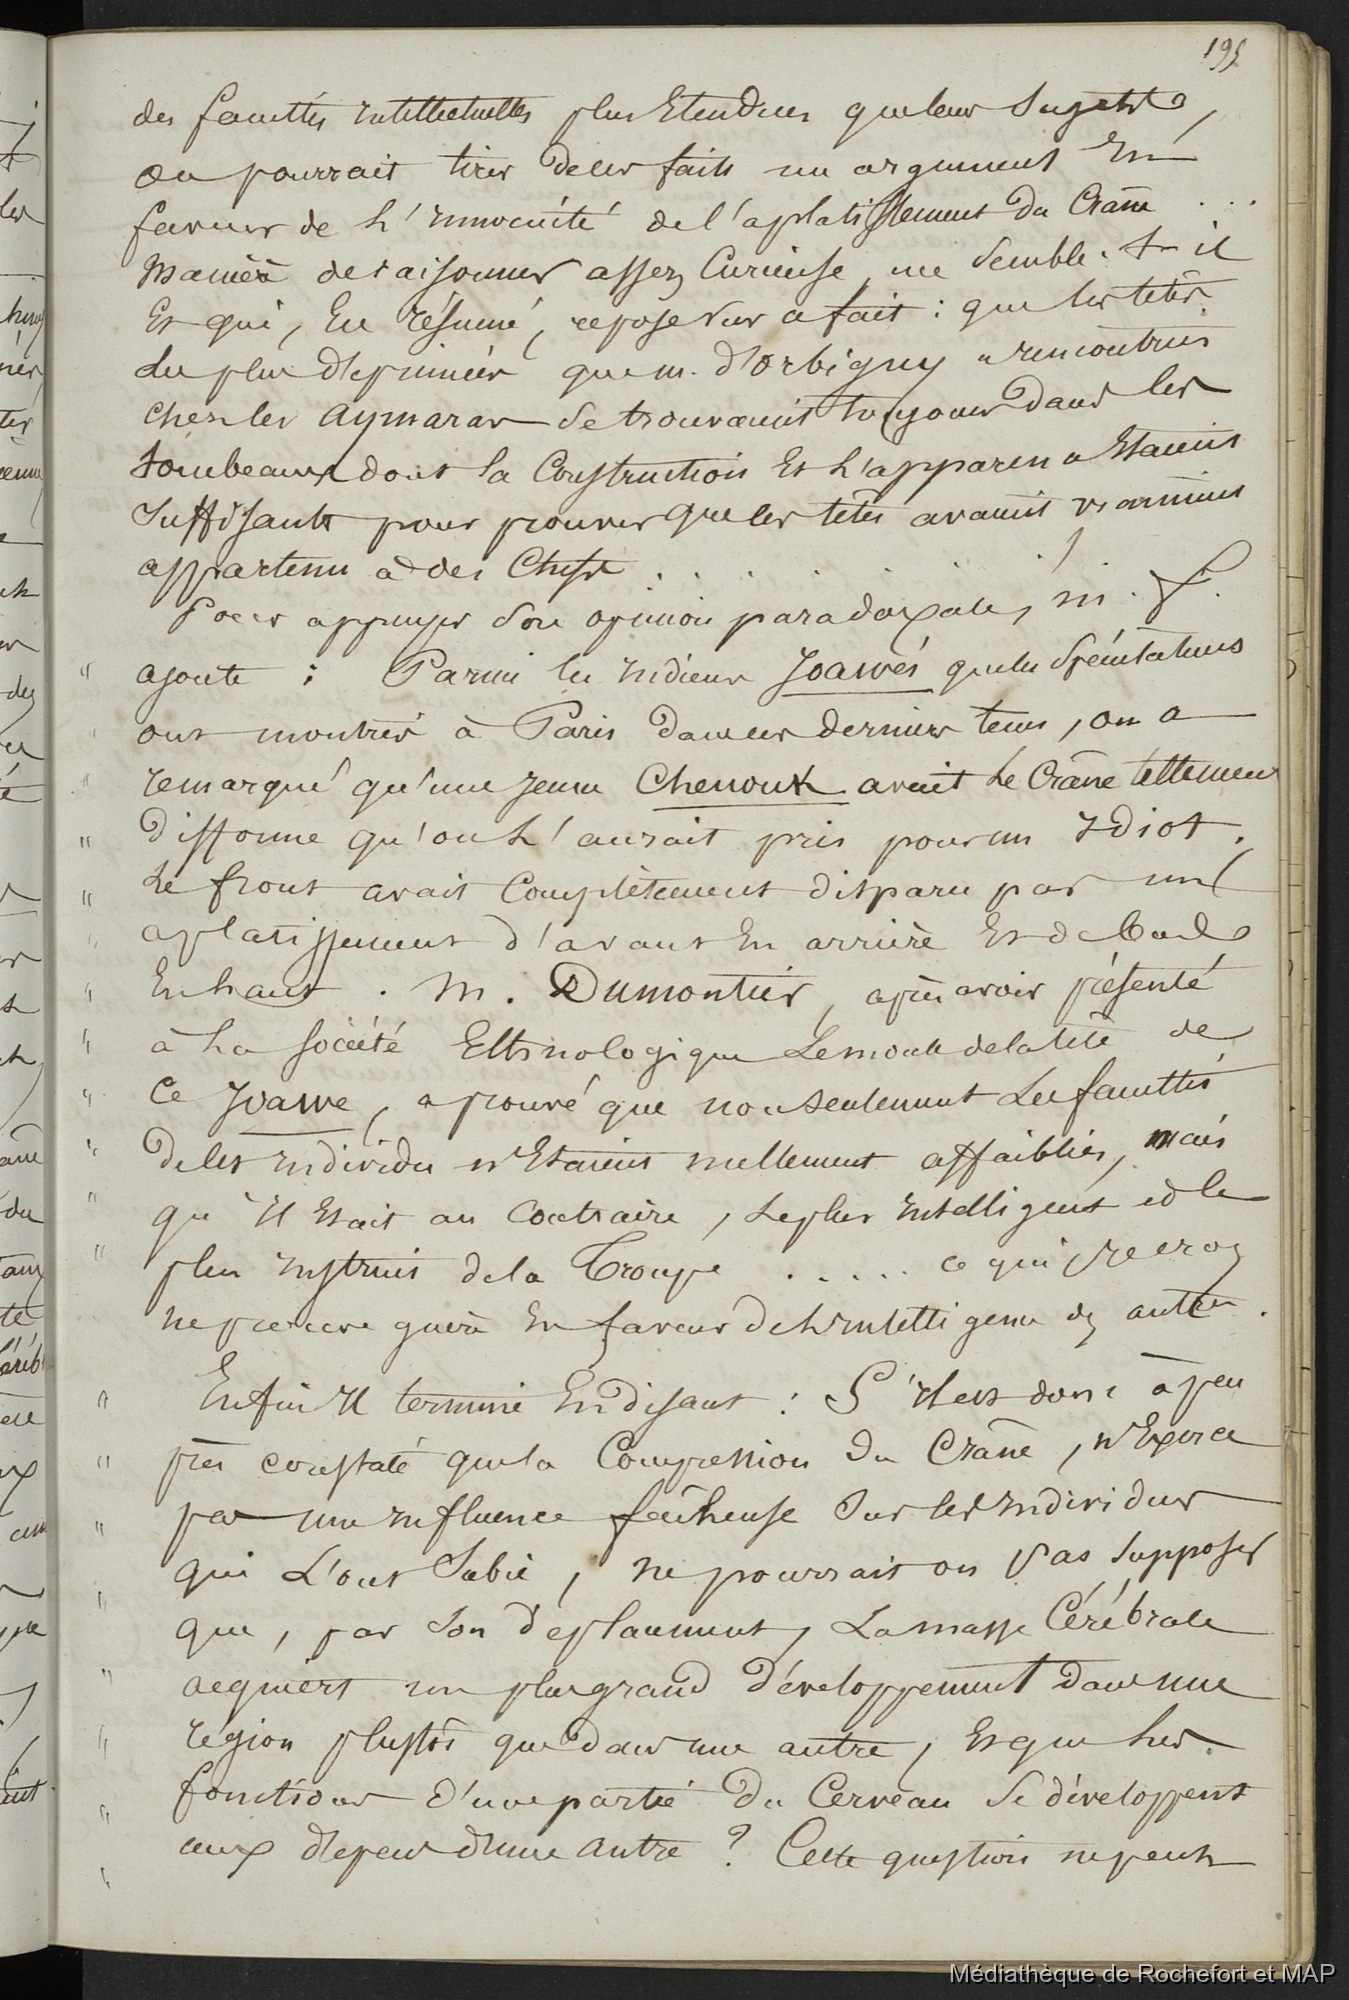 195
des facultés intellectuelles plus Etendues que leurs Sujets,
on pourrait tirer de ces faits un argument En
faveur de l'innocuité de l'aplatissement du Crâne ...
Manière de raisonner assez Curieuse, me Semble-t-il
Et qui, En résumé, repose sur ce fait : que les têtes
les plus déprimées que m. d'Orbigny a rencontrées
chez les Aymaras se trouvaient toujours dans les
tombeaux dont la Construction Et l'apparence Etaient
Suffisants pour prouver que les têtes avaient
appartenu à des Chefs . . . . . . !
Pour appuyer son opinion paradoxale, M. F.
" ajoute : Parmi les indiens Joawés que les Spéculateurs
" ont montrés à Paris dans ces derniers tems, on a
" remarqué qu'une jeune Chenouk avait le Crâne tellement
" difforme qu'on l'aurait pris pour un Idiot.
" le front avait Complètement disparu par un
" aplatissement d'avant En arrière Et de bas
" En haut. M. Dumontier, après avoir présenté
" à la société Ethnologique Le moule de la tête de
" Ce Joawe, a prouvé que non seulement Les facultés
" de cet individu n'Etaient nullement affaiblies, mais
" qu'Il Etait au Contraire, Le plus intelligent et le
" plus instruit de la Troupe . . . . . ce qui je crois
ne prouve guère En faveur de l'intelligence des autres.
" Enfin Il termine En disant : S'il est donc à peu
" près constaté que la Compression du Crâne, n'Exerce
" pas une influence fâcheuse Sur les individus
qui L'ont Subie, ne pourrait on pas Supposer
" que, par son déplacement, La masse Cérébrale
" acquiert un plus grand développement dans une
" région plustôt que dans une autre, Et que les
" fonctions d'une partie du Cerveau se développent
" aux dépens d'une autre ? Cette question ne peut
Médiathèque de Rochefort et MAP